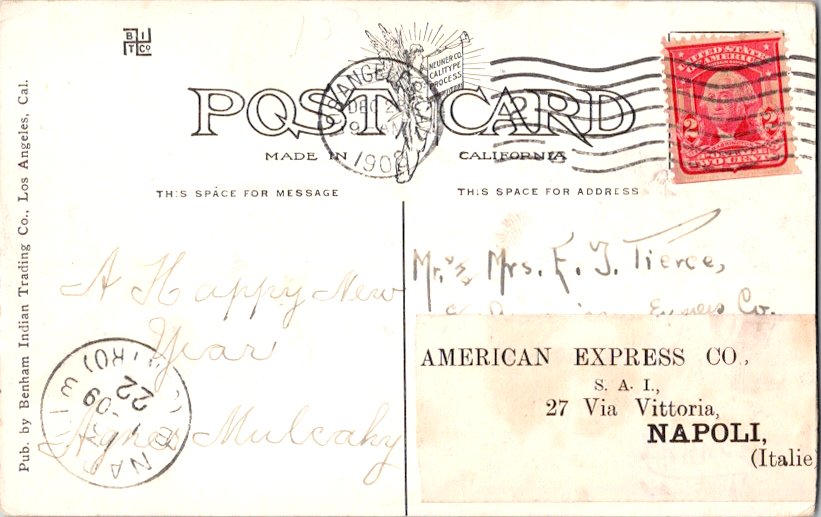 B I
T Co
NEUNER CO.
CALITYPE
PROCESS
POST CARD
MADE IN CALIFORNIA
LOS ANGELES, CAL.
DEC 2
9 AM
190
UNITED STATES
OF AMERICA
2 2
TWO CENTS
THIS SPACE FOR MESSAGE
THIS SPACE FOR ADDRESS
Pub. by Benham Indian Trading Co., Los Angeles, Cal.
A Happy New
Year
Agnes Mulcahy
NAPOLI
-09
22
Mr. & Mrs. F. J. Tierce,
Express Co.
AMERICAN EXPRESS CO.,
S. A. I.,
27 Via Vittoria,
NAPOLI,
(Italie